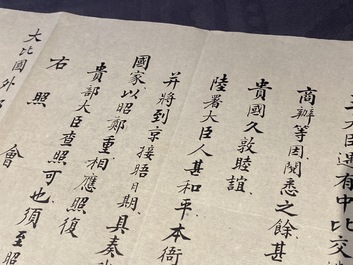 大臣連有中比交
商辦等因閱悉之餘甚
貴國久敦睦誼
陸署大臣人甚和平本衙
并將到京接晤日期具奏
國家以昭鄭重相應照復
貴部大臣查照可也須至照
右照會
大比國外